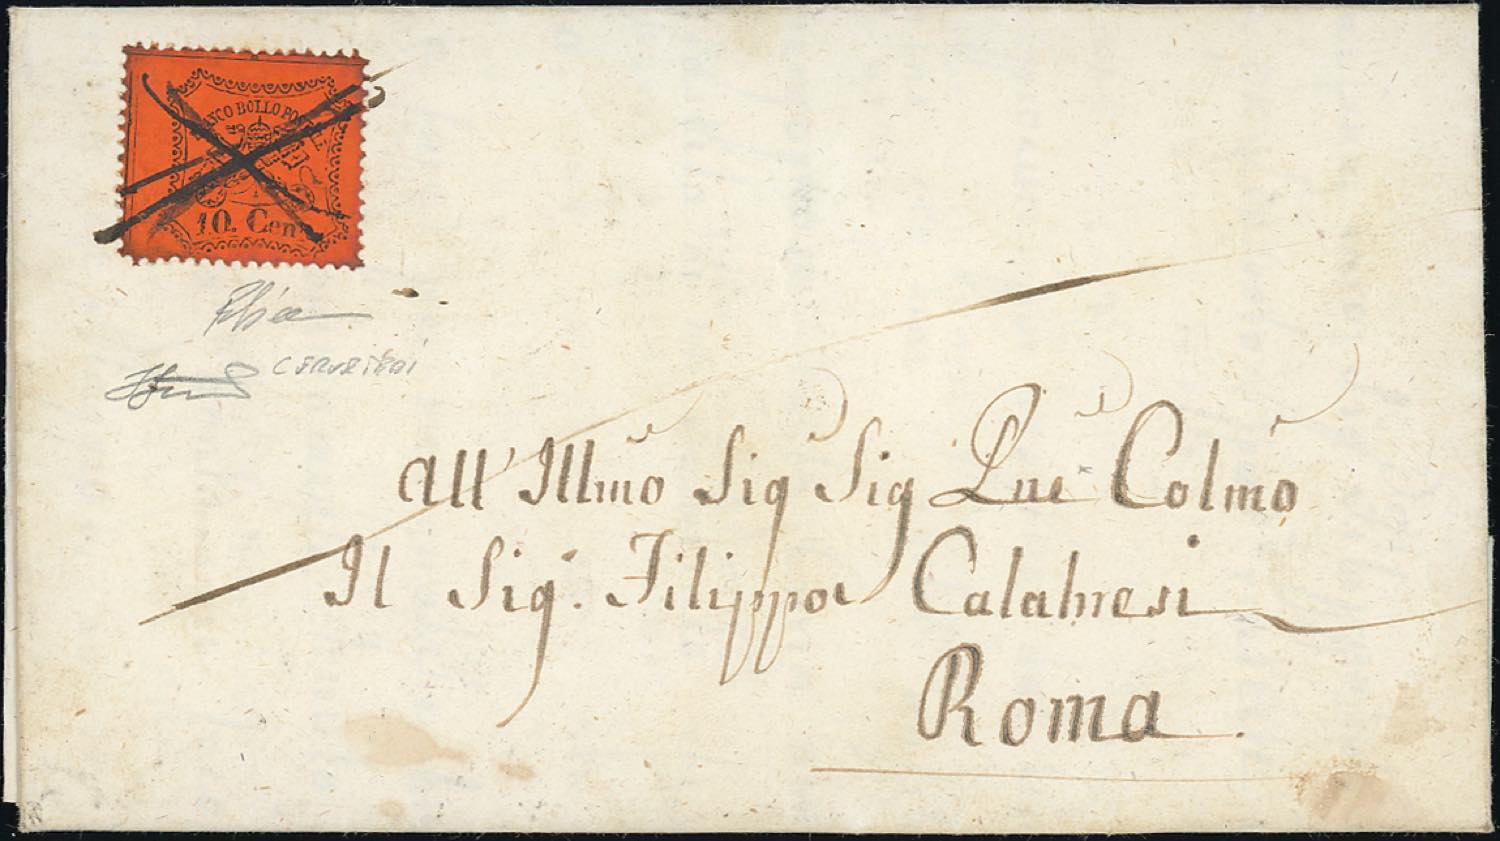 FRANCO BOLLO POSTALE
10. Cent
CERVETERI
All' Illmo Sig Sig Pne Colmo
Il Sig. Filippo Calabresi
Roma.